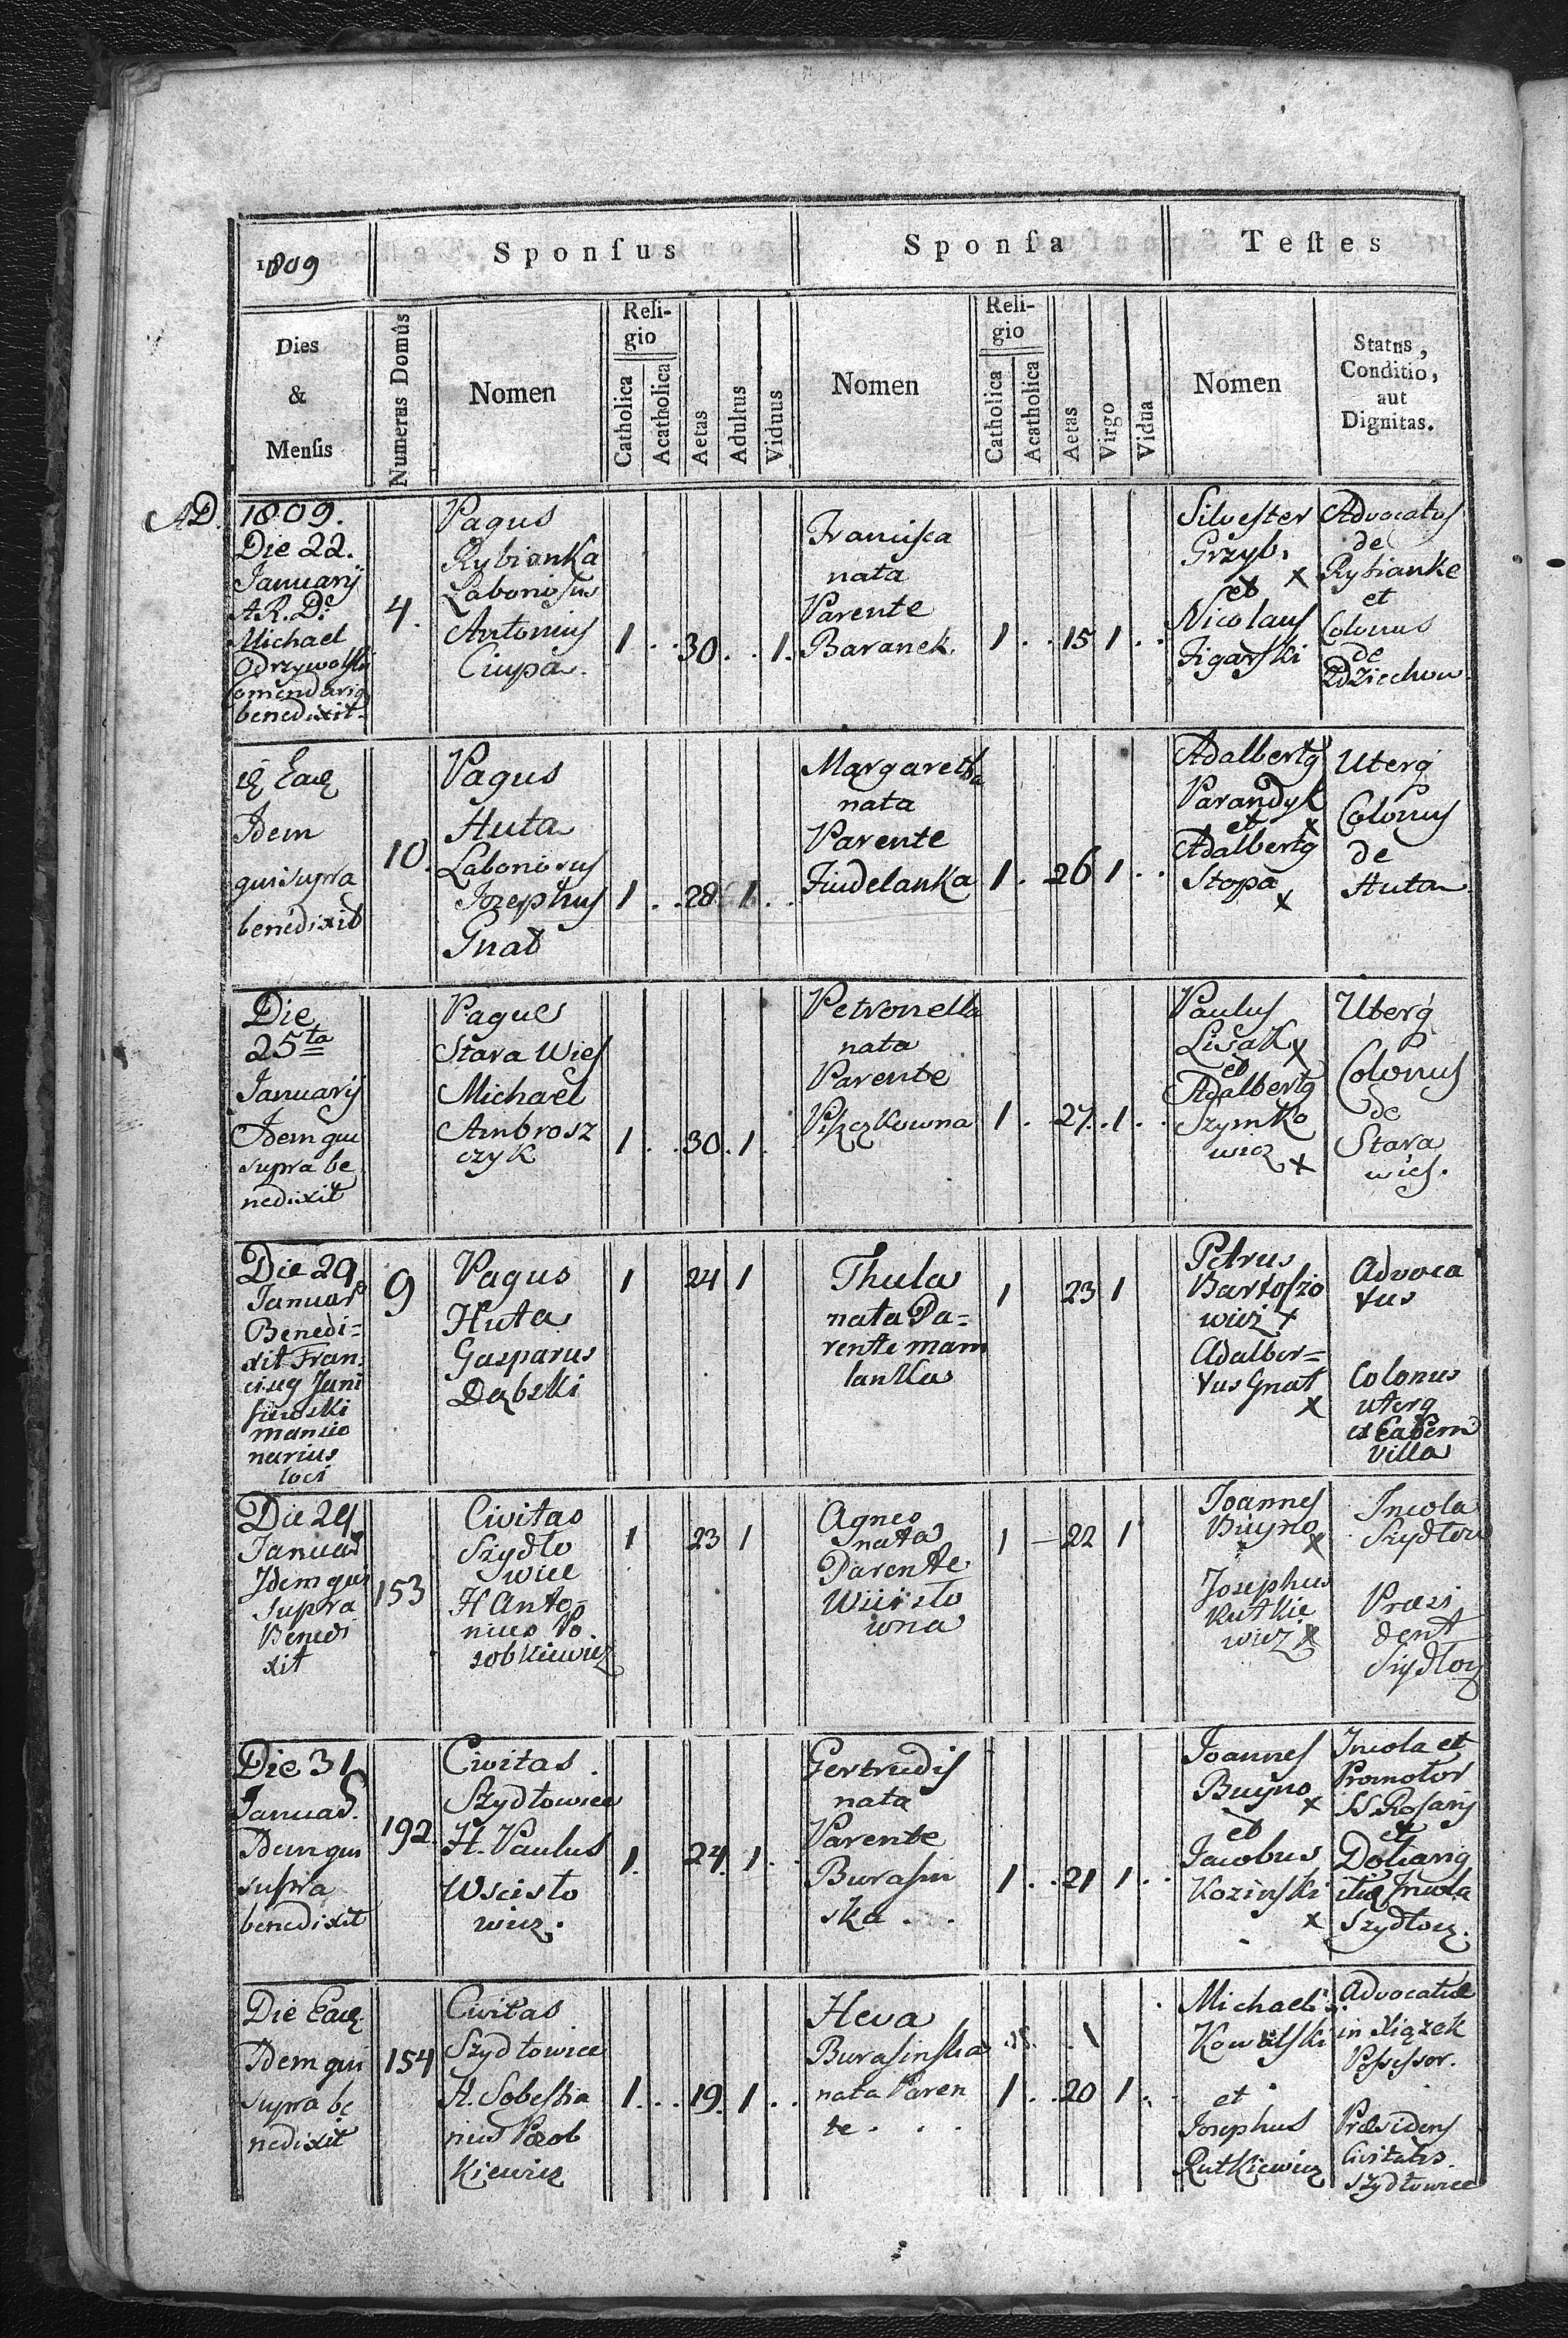 1809
Sponſus
Sponſa
Teſtes
Dies
&
Menſis
Numerus Domûs
Nomen
Reli-
gio
Catholica
Acatholica
Aetas
Adultus
Viduus
Nomen
Reli-
gio
Catholica
Acatholica
Aetas
Virgo
Vidua
Nomen
Status,
Conditio,
aut
Dignitas.
AD. 1809.
Die 22.
Januarij
A.R.D.
Michael
Odrzywolski
Comendari9
benedixit.
4.
Pagus
Rybianka
Laboriosus
Antonius
Ciupa.
1 . . 30 . . 1.
Francisca
nata
Parente
Baranek.
1 . . 15 1 . .
Silvester
Grzyb.
et x
Nicolaus
Figarski
Advocatus
de
Rybianke
et
Colonus
de
Zdziechow
Eaq
Idem
qui supra
benedixit
10.
Pagus
Huta
Laboriosus
Jozephus
Gnat
1 . . 28 1 . .
Margaretha
nata
Parente
Fiudelanka
1 . 26 1 . .
Adalbert9
Parandyk
et x
Adalbert9
Stopa
x
Uterq
Colonus
de
Huta
Die
25ta
Januarij
Idem qui
supra be
nedixit
Pagus
Stara Wies
Michael
Ambrosz
czyk
1 . . 30 . 1 .
Petronella
nata
Parente
1 . 27 . 1 . .
Paulus
Lisak x
et
Adalbert9
Szymko
wicz x
Uterq
Colonus
de
Stara
wies.
Die 29
Januar
Benedi=
xit Fran
cisc9 Juni
szewski
mansio
narius
loci
9
Pagus
Huta
Gasparus
Dąbski
1 24 1
Thula
nata Pa=
rente mam
lanka
1 23 1
Petrus
Bartoszo
wicz x
Adalber=
tus Gnat
x
Advoca
tus
Colonus
uterq
ex Eadem
Villa
Die 29
Januar
Idem qui
supra
Benedi
xit
153
Civitas
Szydło
wice
H Anto=
nius Po
sobkiewicz
1 23 1
Agnes
nata
Parente
Wścisło
wna
1 – 22 1
Joannes
Buyno
x
Josephus
Rutkie
wicz x
Incola
Szydłow
Praesi
dent
Szydłow
Die 31
Januar.
Idem qui
supra
benedixit
192.
Civitas.
Szydłowice
H. Paulus
Wścisło
wicz.
1. 24. 1. .
Gertrudis
nata
Parente
Burasin
ska . .
1 . . 21 1 . .
Joannes
Buyno
x
et
Jacobus
Kozinski
x
Incola et
Promotor
SS Rosarij
et
Doliari9
itiq Incola
Szydłow.
Die Eaq.
Idem qui
supra be
nedixit
154
Civitas
Szydłowice
H. Sobestia
nus Posob
kiewicz
1 . . . 19. 1 . .
Heva
Burasinska
nata Paren
te . . .
1 . . 20 1 . .
Michael
Kowalski
et
Josephus
Rutkiewicz
Advocatiae
in Xiązek
Possessor.
Praesidens
Civitatis.
Szydłowice